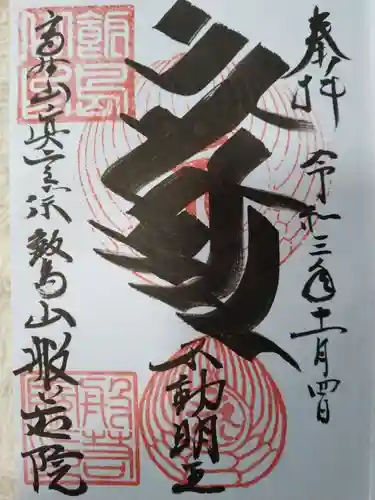 奉拝
令和三年十一月四日
不動明王
高野山真言宗 飯島山 般若院